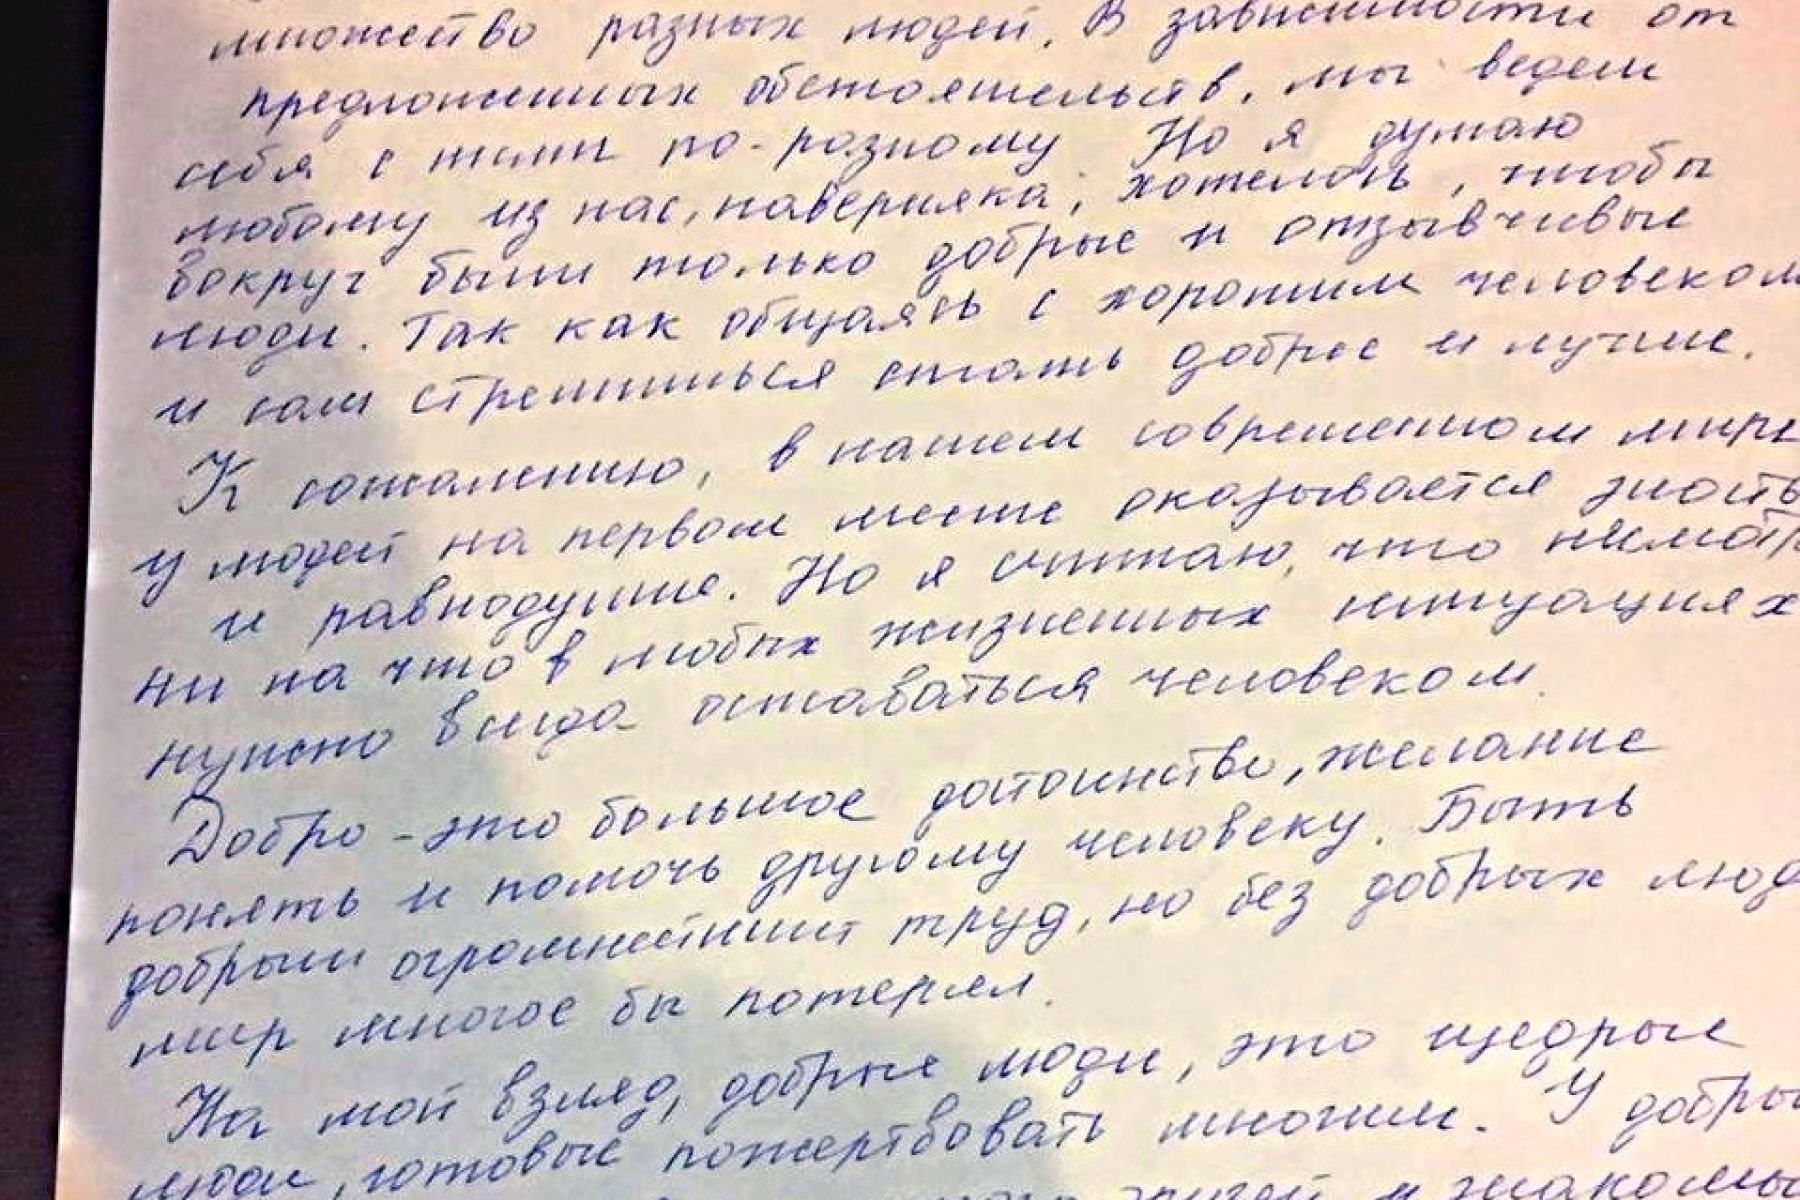 множество разных людей. В зависимости от
предложенных обстоятельств, мы ведем
себя с ними по-разному Но я думаю
любому из нас, наверняка, хотелось, чтобы
вокруг были только добрые и отзывчивые
люди. Так как общаясь с хорошим человеком
и сам стремишься стать добрее и лучше.
К сожалению, в нашем современном мире
у людей на первом месте оказывается злость
и равнодушие. Но я считаю, что несмотр
ни на что в любых жизненных ситуациях
нужно всегда оставаться человеком.
Добро - это большое достоинство, желание
понять и помочь другому человеку. Быть
добрым огромнейший труд, но без добрых люд
мир многое бы потерял.
На мой взгляд, добрые люди, это щедрые
люди, готовые пожертвовать многим. У добры
друзей и знакомы